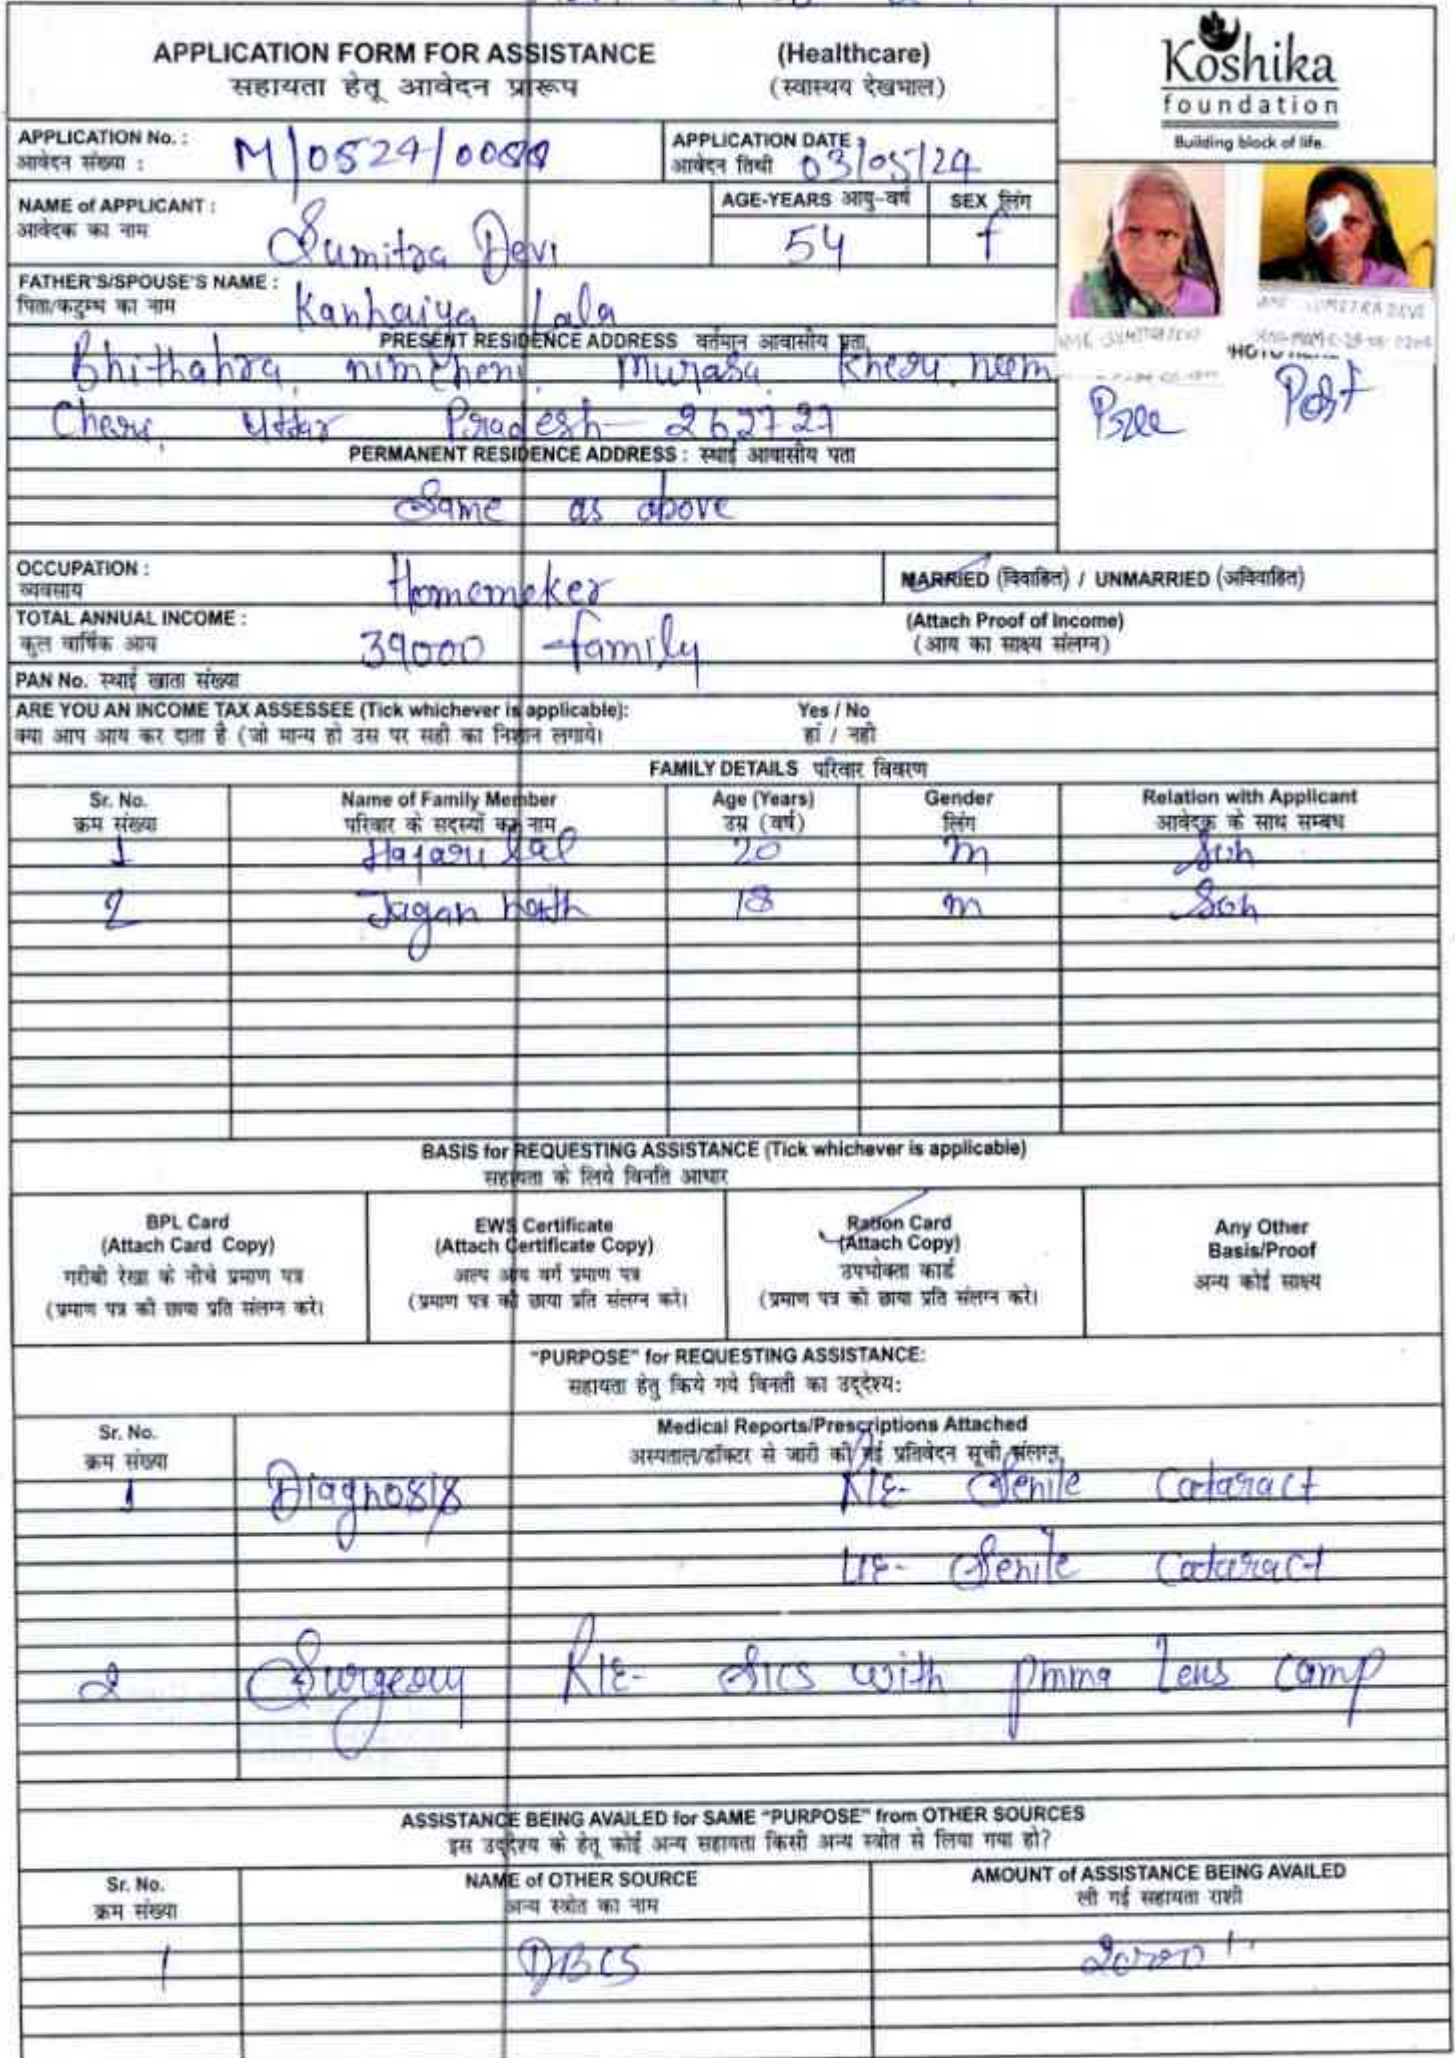 APPLICATION FORM FOR ASSISTANCE (Healthcare)
सहायता हेतू आवेदन प्रारूप (स्वास्थय देखभाल)
Koshika
foundation
Building block of life.
APPLICATION No. : M/0524/
आवेदन संख्या :
APPLICATION DATE : 03/05/24
आवेदन तिथी
NAME of APPLICANT : Sumitra Devi
आवेदक का नाम
AGE-YEARS आयु-वर्ष 54
SEX लिंग f
FATHER'S/SPOUSE'S NAME : Kanhaiya Lala
पिता/कटुम्ब का नाम
PRESENT RESIDENCE ADDRESS वर्तमान आवासीय पता
Bhithahra, nimcheni, Murasa, Kheri, neem
Cheni, Uttar Pradesh - 262727
PERMANENT RESIDENCE ADDRESS : स्थाई आवासीय पता
Same as above
Pree Post
OCCUPATION : Homemaker
व्यवसाय
MARRIED (विवाहित) / UNMARRIED (अविवाहित)
TOTAL ANNUAL INCOME : 39000 - family
कुल वार्षिक आय
(Attach Proof of Income)
(आय का साक्ष्य संलग्न)
PAN No. स्थाई खाता संख्या
ARE YOU AN INCOME TAX ASSESSEE (Tick whichever is applicable): Yes / No
क्या आप आय कर दाता है (जो मान्य हो उस पर सही का निशान लगाये। हां / नही
FAMILY DETAILS परिवार विवरण
Sr. No. Name of Family Member Age (Years) Gender Relation with Applicant
क्रम संख्या परिवार के सदस्यों का नाम उम्र (वर्ष) लिंग आवेदक के साथ सम्बध
1 Hajari Lal 20 m Son
2 Jagan nath 18 m Son
BASIS for REQUESTING ASSISTANCE (Tick whichever is applicable)
सहायता के लिये विनति आधार
BPL Card
(Attach Card Copy)
गरीबी रेखा के नीचे प्रमाण पत्र
(प्रमाण पत्र की छाया प्रति संलग्न करे।
EWS Certificate
(Attach Certificate Copy)
अल्प आय वर्ग प्रमाण पत्र
(प्रमाण पत्र की छाया प्रति संलग्न करे।
Ration Card
(Attach Copy)
उपभोक्ता कार्ड
(प्रमाण पत्र की छाया प्रति संलग्न करे।
Any Other
Basis/Proof
अन्य कोई साक्ष्य
"PURPOSE" for REQUESTING ASSISTANCE:
सहायता हेतु किये गये विनती का उद्देश्य:
Sr. No. Medical Reports/Prescriptions Attached
क्रम संख्या अस्पताल/डॉक्टर से जारी की गई प्रतिवेदन सूची संलग्न
1 Diagnosis R/E- Senile Cataract
L/E- Senile Cataract
2 Surgery R/E- SICS with pmma Lens Camp
ASSISTANCE BEING AVAILED for SAME "PURPOSE" from OTHER SOURCES
इस उद्देश्य के हेतू कोई अन्य सहायता किसी अन्य स्त्रोत से लिया गया हो?
Sr. No. NAME of OTHER SOURCE AMOUNT of ASSISTANCE BEING AVAILED
क्रम संख्या अन्य स्त्रोत का नाम ली गई सहायता राशी
1 DBCS